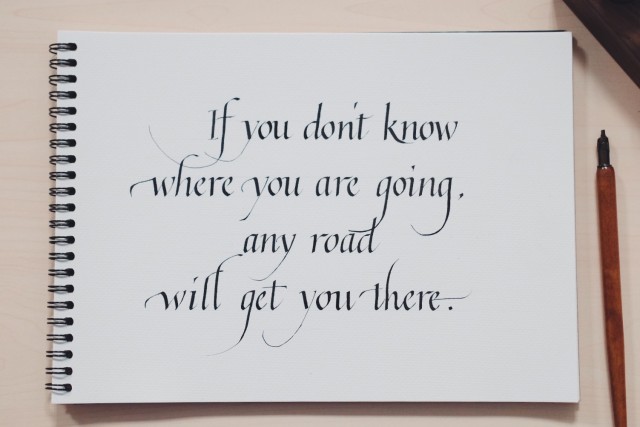 If you don't know
where you are going,
any road
will get you there.